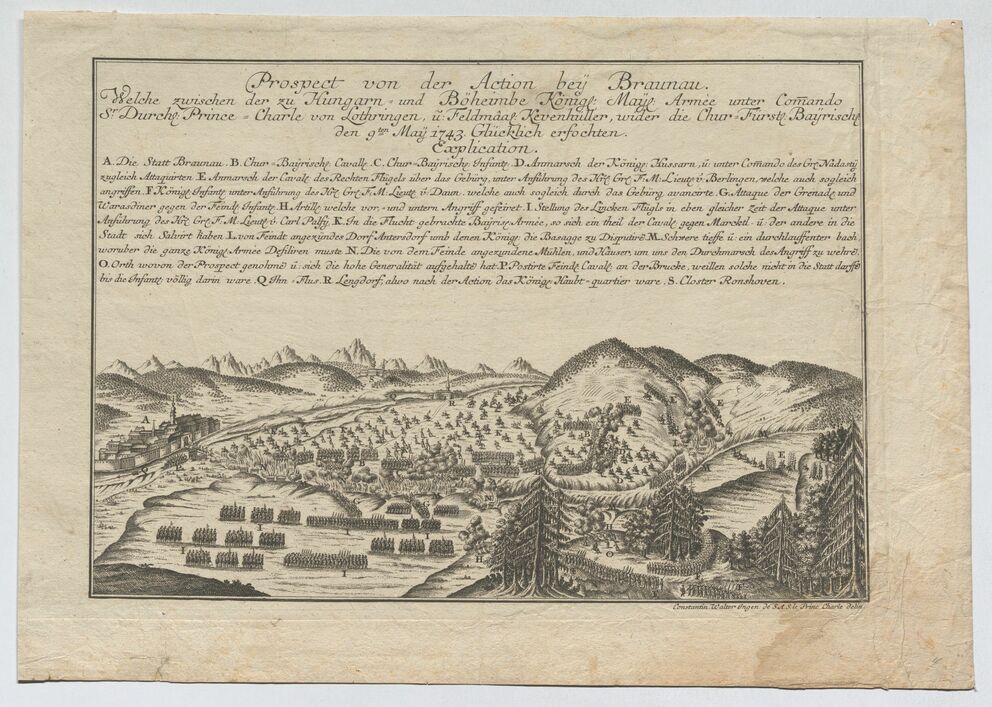 Prospect von der Action beÿ Braunau.
Welche zwischen der zu Hungarn- und Böheimbe Königl: Maÿt: Armée unter Com̄ando
Sr Durchl: Prince-Charle von Lothringen, ü: Feldmaal Kevenhüller, wider die Chur-Fürstl: Baÿrisch:
den 9ten Maÿ 1743. Glücklich erfochten.
Explication.
A. Die Statt Braunau. B. Chur-Baÿrisch: Cavall: C. Chur-Baÿrisch: Infant: D. Anmarsch der Königl: Hussarn, ü: unter Com̄ando des Gr: Nadastÿ
zugleich Attaquirten. E. Anmarsch der Caval: des Rechten Flügels über das Gebürg, unter Anführung des Gr: F. M. Lieut: v: Berlingen, welche auch sogleich
angriffen. F. Königl: Infant: unter Anführung des Gr: F. M. Lieut: v: Daun, welche auch sogleich durch das Gebürg, avancirte. G. Attaque der Grenad: und
Warasdiner gegen der Feindl: Infant: H. Artill: welche vor- und untern Angriff gefeiret. I. Stellung des Lincken Flügls in eben gleicher zeit der Attaque unter
Anführung des Gr: F. M. Lieut: v: Carl Palfÿ. K. In die Flucht gebrachte Baÿris: Armée, so sich ein theil der Caval: gegen Marcktl ü: der andere in die
Stadt sich Salvirt haben. L. von Feindt angezündes Dorf Antersdorf umb denen Königl: die Basagge zu Disputirē. M. Schwere tieffe ü: ein durchlauffenter bach,
worüber die ganze Königl: Armée Defiliren muste. N. Die von dem Feinde angezundene Mühlen, und Häuser, um uns den Durchmarsch des Angriff zu wehrē.
O. Orth wovon der Prospect genohmē ü: sich die hohe Generalität aufgehaltē hat. P. Postirte Feindl: Caval: an der Brucke, weillen solche nicht in die Statt darffē
bis die Infant: völlig darin ware. Q. Ihn-Flus. R. Lengdorf, alwo nach der Action das Königl: Haubt-quartier ware. S. Closter Ronshoven.
A
R
E
E
E
I
I
I
I
H
O
Constantin Walter Ingen de S. A. S. le Princ Charle delin